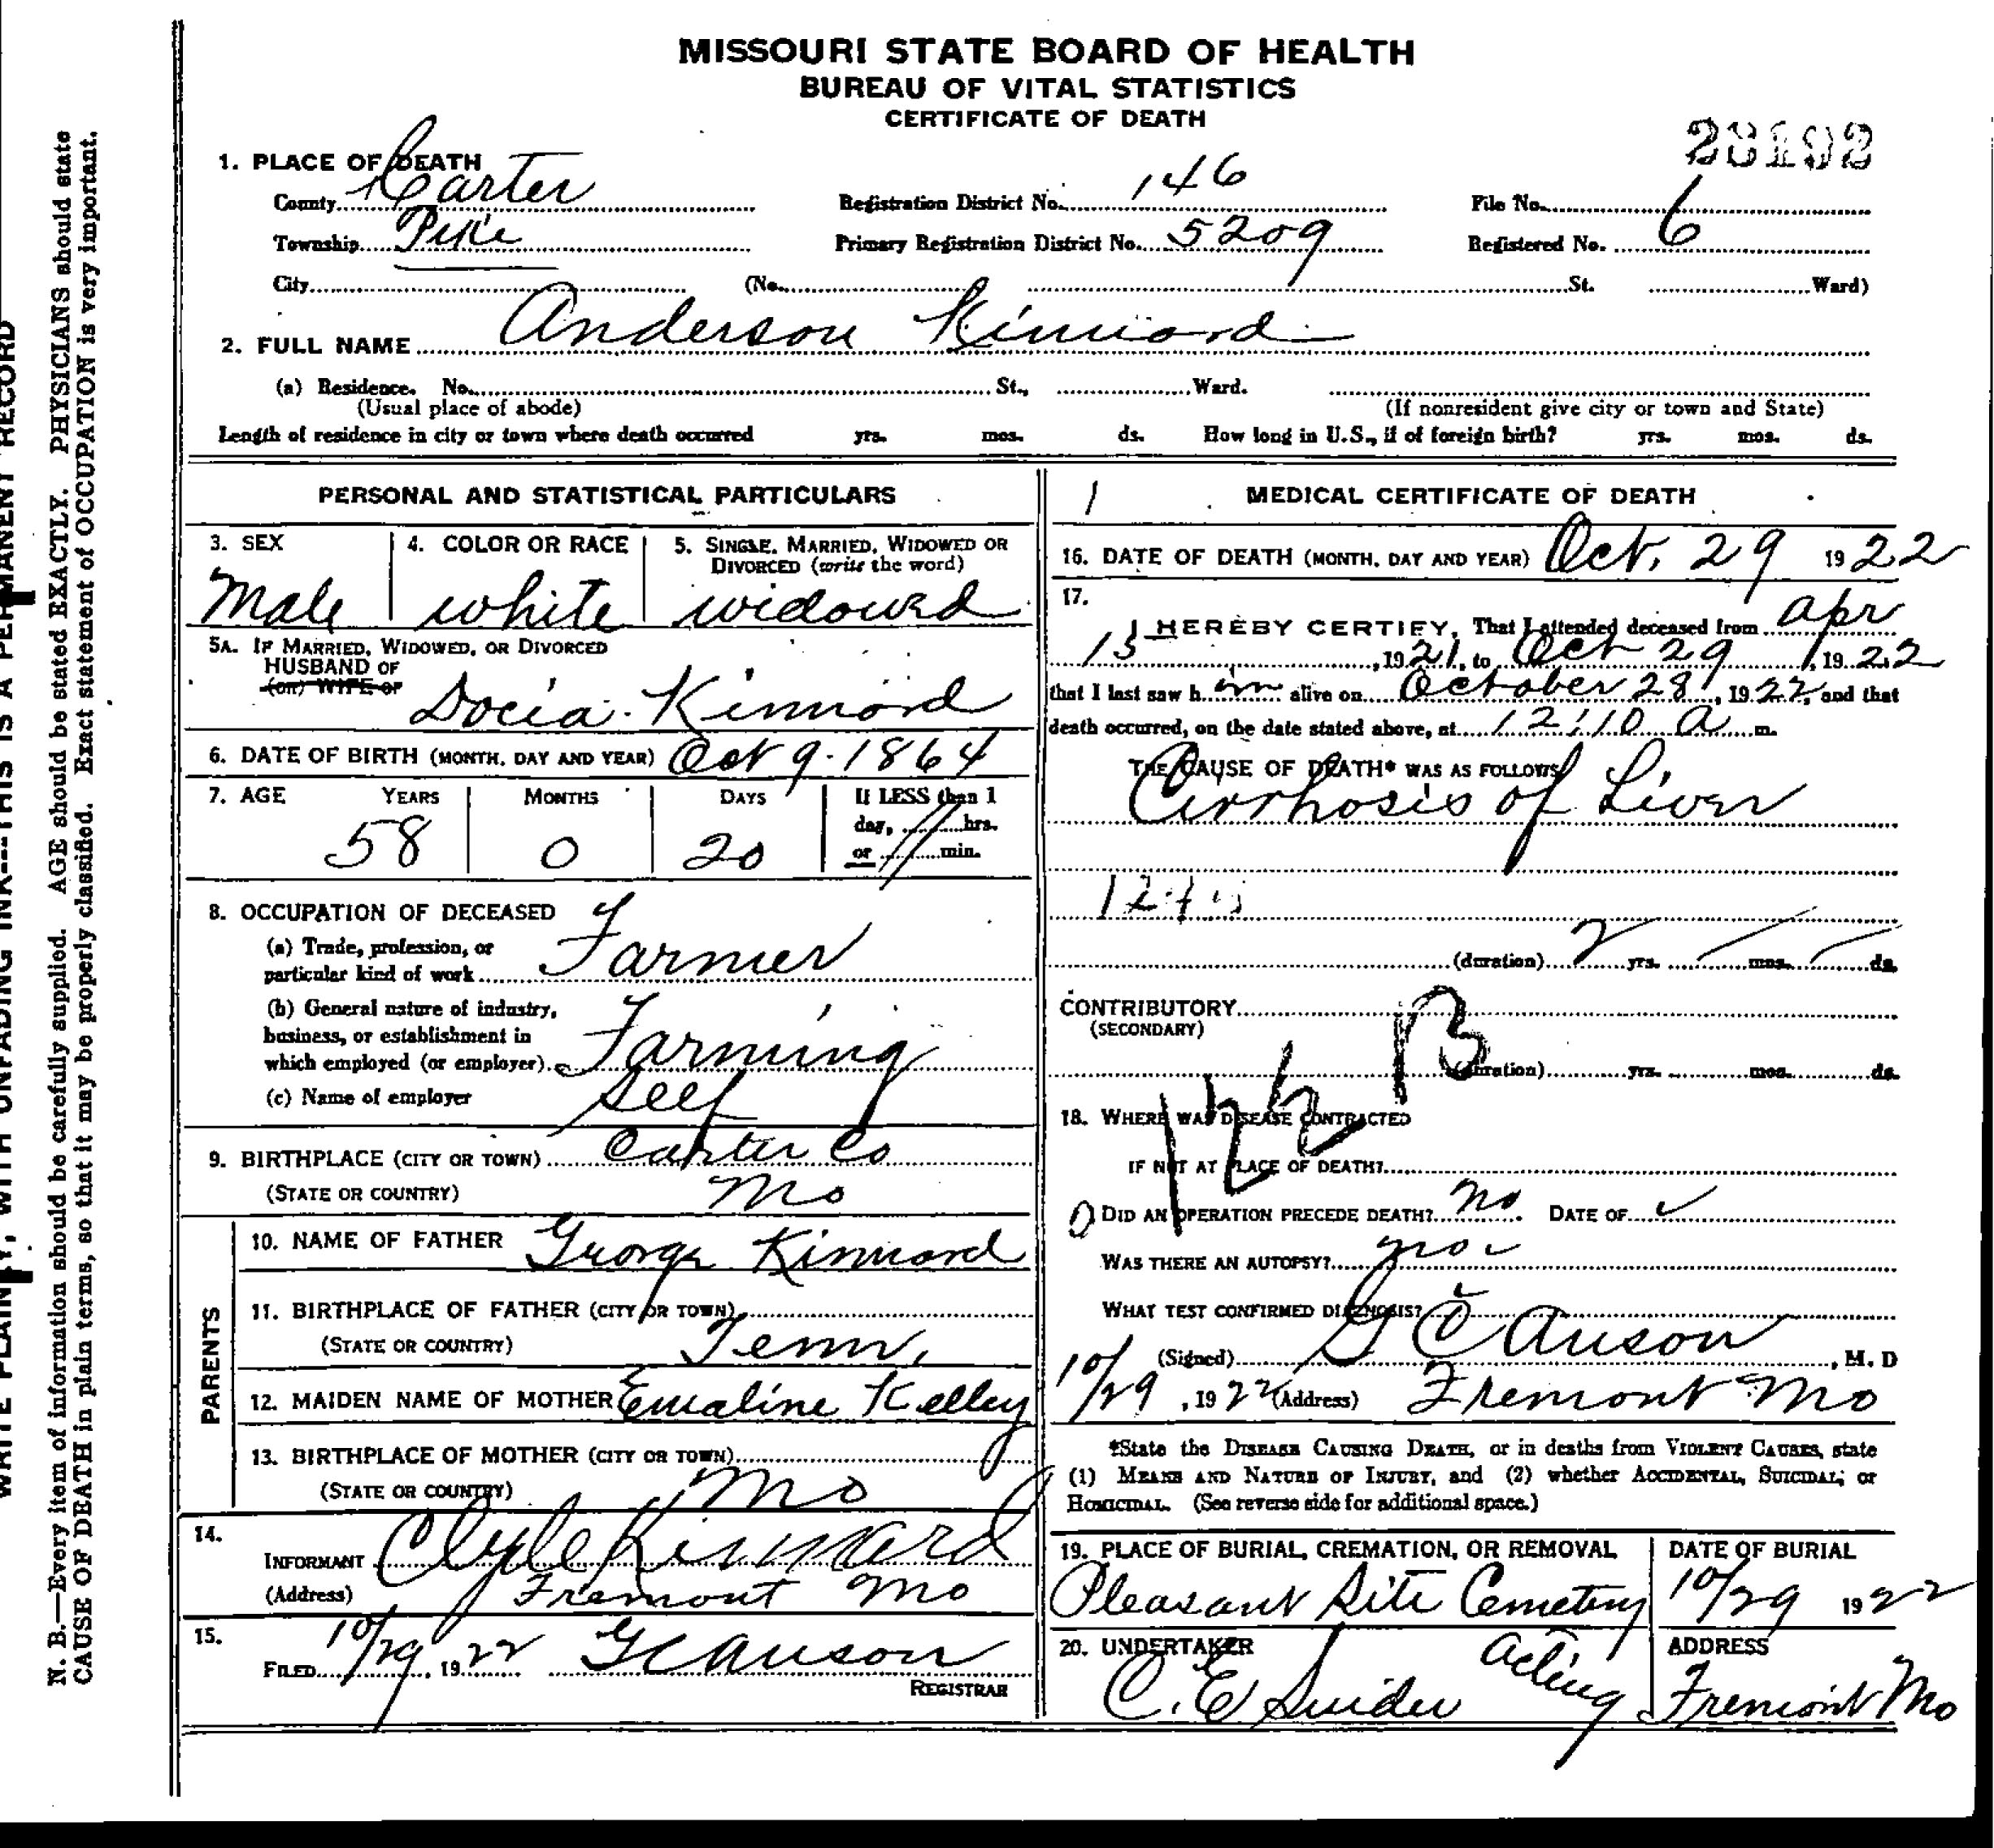 MISSOURI STATE BOARD OF HEALTH
BUREAU OF VITAL STATISTICS
CERTIFICATE OF DEATH
1. PLACE OF DEATH
County Carter Registration District No. 146 File No.
Township Pike Primary Registration District No. 5209 Registered No. 6
City (No. St. Ward)
2. FULL NAME Anderson Kinnard
(a) Residence. No. St., Ward.
(Usual place of abode) (If nonresident give city or town and State)
Length of residence in city or town where death occurred yrs. mos. ds. How long in U.S., if of foreign birth? yrs. mos. ds.
PERSONAL AND STATISTICAL PARTICULARS
3. SEX 4. COLOR OR RACE 5. SINGLE, MARRIED, WIDOWED OR
DIVORCED (write the word)
Male white widowed
5A. IF MARRIED, WIDOWED, OR DIVORCED
HUSBAND OF
(or) WIFE OF
Docia Kinnard
6. DATE OF BIRTH (MONTH, DAY AND YEAR) Oct 9-1864
7. AGE YEARS MONTHS DAYS If LESS than 1
day, hrs.
58 0 20
or min.
8. OCCUPATION OF DECEASED
(a) Trade, profession, or
particular kind of work Farmer
(b) General nature of industry,
business, or establishment in
which employed (or employer) Farming
(c) Name of employer Self
9. BIRTHPLACE (CITY OR TOWN) Carter Co
(STATE OR COUNTRY) Mo
PARENTS
10. NAME OF FATHER George Kinnard
11. BIRTHPLACE OF FATHER (CITY OR TOWN)
(STATE OR COUNTRY) Tenn,
12. MAIDEN NAME OF MOTHER Emaline Kelley
13. BIRTHPLACE OF MOTHER (CITY OR TOWN)
(STATE OR COUNTRY) Mo
14.
INFORMANT Clyde Kinnard
(Address) Fremont Mo
15.
FILED 10/29, 1922 G C Auson
REGISTRAR
1 MEDICAL CERTIFICATE OF DEATH
16. DATE OF DEATH (MONTH, DAY AND YEAR) Oct. 29 1922
17.
I HEREBY CERTIFY, That I attended deceased from Apr
15, 1921, to Oct 29, 1922
that I last saw him alive on October 28, 1922, and that
death occurred, on the date stated above, at 12:10 a m.
THE CAUSE OF DEATH* WAS AS FOLLOWS
Cirrhosis of Liver
(duration) 2 yrs. mos. ds.
CONTRIBUTORY
(SECONDARY)
(duration) yrs. mos. ds.
18. WHERE WAS DISEASE CONTRACTED
IF NOT AT PLACE OF DEATH?
DID AN OPERATION PRECEDE DEATH? no. DATE OF
WAS THERE AN AUTOPSY? no
WHAT TEST CONFIRMED DIAGNOSIS?
(Signed) G C Auson, M. D
10/29, 1922 (Address) Fremont Mo
*State the DISEASE CAUSING DEATH, or in deaths from VIOLENT CAUSES, state
(1) MEANS AND NATURE OF INJURY, and (2) whether ACCIDENTAL, SUICIDAL, or
HOMICIDAL. (See reverse side for additional space.)
19. PLACE OF BURIAL, CREMATION, OR REMOVAL DATE OF BURIAL
Pleasant Site Cemetery 10/29 1922
20. UNDERTAKER ADDRESS
C. E Snider acting Fremont Mo
N. B.—Every item of information should be carefully supplied. AGE should be stated EXACTLY. PHYSICIANS should state
CAUSE OF DEATH in plain terms, so that it may be properly classified. Exact statement of OCCUPATION is very important.